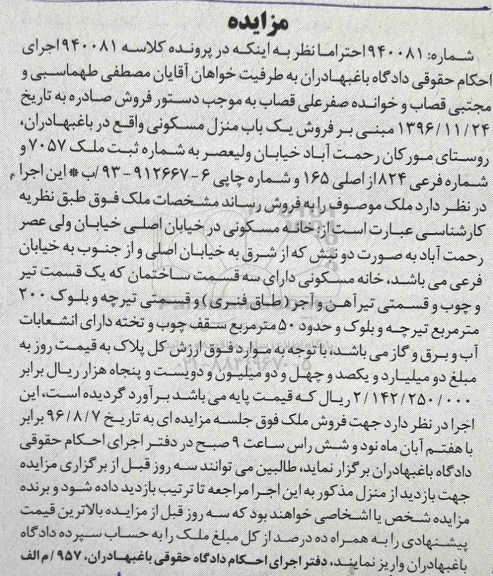 مزایده
شماره: ۹۴۰۰۸۱ احتراما نظر به اینکه در پرونده کلاسه ۹۴۰۰۸۱ اجرای
احکام حقوقی دادگاه باغبهادران به طرفیت خواهان آقایان مصطفی طهماسبی و
مجتبی قصاب و خوانده صفرعلی قصاب به موجب دستور فروش صادره به تاریخ
۱۳۹۶/۱۱/۲۴ مبنی بر فروش یک باب منزل مسکونی واقع در باغبهادران،
روستای مورکان رحمت آباد خیابان ولیعصر به شماره ثبت ملک ۷۰۵۷ و
شماره فرعی ۸۲۴ از اصلی ۱۶۵ و شماره چاپی ۶-۹۱۲۶۶۷-۹۳/ب * این اجرا
در نظر دارد ملک موصوف را به فروش رساند مشخصات ملک فوق طبق نظریه
کارشناسی عبارت است از: خانه مسکونی در خیابان اصلی خیابان ولی عصر
رحمت آباد به صورت دو نبش که از شرق به خیابان اصلی و از جنوب به خیابان
فرعی می باشد، خانه مسکونی دارای سه قسمت ساختمان که یک قسمت تیر
و چوب و قسمتی تیرآهن و آجر (طاق فنری) و قسمتی تیرچه و بلوک ۲۰۰
مترمربع تیرچه و بلوک و حدود ۵۰ مترمربع سقف چوب و تخته دارای انشعابات
آب و برق و گاز می باشد، با توجه به موارد فوق ارزش کل پلاک به قیمت روز به
مبلغ دو میلیارد و یکصد و چهل و دو میلیون و دویست و پنجاه هزار ریال برابر
۲/۱۴۲/۲۵۰/۰۰۰ ریال که قیمت پایه می باشد برآورد گردیده است، این
اجرا در نظر دارد جهت فروش ملک فوق جلسه مزایده ای به تاریخ ۹۶/۸/۷ برابر
با هفتم آبان ماه نود و شش راس ساعت ۹ صبح در دفتر اجرای احکام حقوقی
دادگاه باغبهادران برگزار نماید، طالبین می توانند سه روز قبل از برگزاری مزایده
جهت بازدید از منزل مذکور به این اجرا مراجعه تا ترتیب بازدید داده شود و برنده
مزایده شخص یا اشخاصی خواهند بود که سه روز قبل از مزایده بالاترین قیمت
پیشنهادی را به همراه ده درصد از کل مبلغ ملک را به حساب سپرده دادگاه
باغبهادران واریز نمایند، دفتر اجرای احکام دادگاه حقوقی باغبهادران، ۹۵۷/م الف